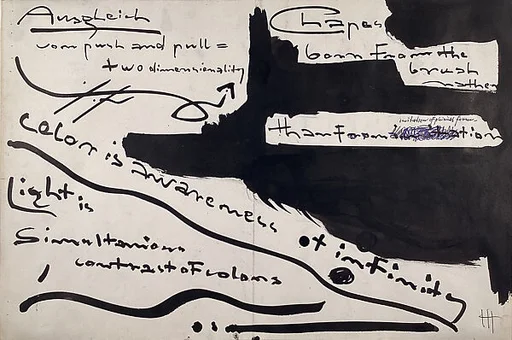 Ausgleich
vom push and pull =
two dimensionality
Shapes
born from the
brush
rather
than from
imitation of
color is awareness of infinity
Light is
Simultanious
contrast of colors
HH